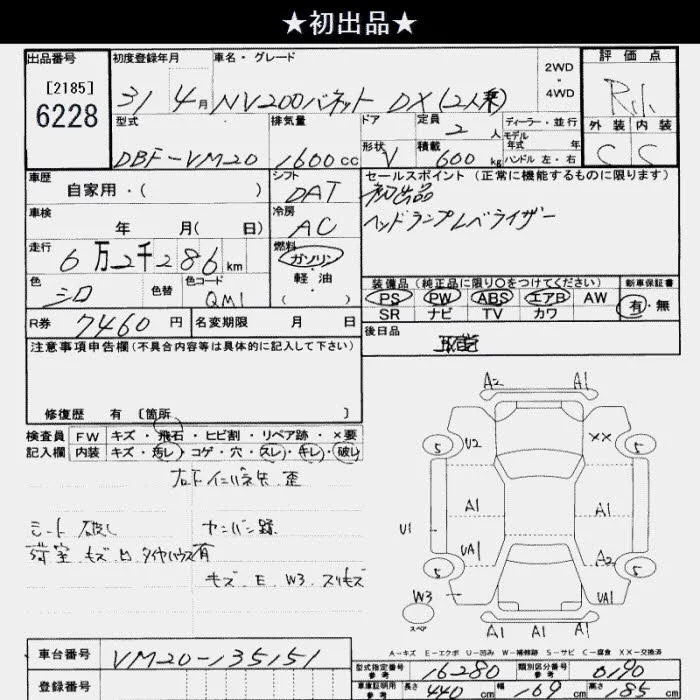 ★初出品★
出品番号 初度登録年月 車名・グレード 2WD・4WD 評価点
[2185] 6228 31 4月 NV200バネット DX(2人乗) R.1.
型式 排気量 ドア 定員 2人 ディーラー・並行 外装 内装
モデル年式 年
DBF-VM20 1600cc 形状 V 積載 600kg ハンドル 左・右 C C
車歴 シフト セールスポイント(正常に機能するものに限ります)
自家用・( ) DAT 初出品
車検 冷房 ヘッドランプレベライザー
年 月( 日) AC
走行 燃料
6万2千286km ガソリン
軽油
( )
色 色替 色コード 装備品(純正品に限り○をつけてください) 新車保証書
シロ QM1 PS PW ABS エアB AW 有・無
SR ナビ TV カワ
R券 7460円 名変期限 月 日 後日品
注意事項申告欄(不具合内容等は具体的に記入して下さい) 取説
修復歴 有 [箇所 ]
検査員 FW キズ・飛石・ヒビ割・リペア跡・×要
記入欄 内装 キズ・汚レ・コゲ・穴・スレ・キレ・破レ
歪
シート 破レ
キズ E W3 スリキズ
A2 A1
5 U2 XX 5
A1 A1
U1 UA1 A2
5 5
W3 UA1
スペア A1 A1 A1
A-キズ E-エクボ U-凹み W-補修跡 S-サビ C-腐食 XX-交換済
車台番号 VM20-135151
型式指定番号 参考 16280 類別区分番号 参考 0190
登録番号 車庫証明用 参考 長さ 440cm 幅 169cm 高さ 185cm